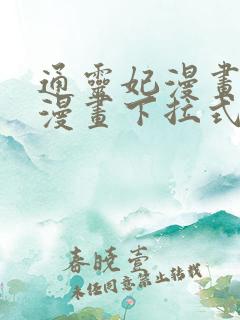 通靈妃漫畫
漫畫下拉式
春曉壹
未经同意禁止转载